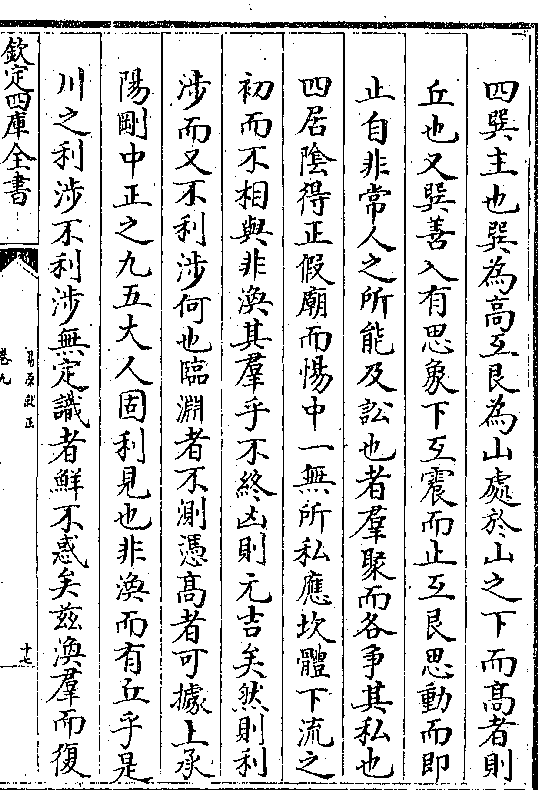 四巽主也巽為高互艮為山處於山之下而髙者則
丘也又巽善入有思象下互震而止互艮思動而即
止自非常人之所能及訟也者羣聚而各爭其私也
四居陰得正假廟而惕中一無所私應坎體下流之
初而不相與非渙其羣乎不終凶則元吉矣然則利
涉而又不利涉何也臨淵者不測憑髙者可據上承
陽剛中正之九五大人固利見也非渙而有丘乎是
川之利涉不利涉無定識者鮮不惑矣兹渙羣而復
欽定四庫全書
易原就正
卷九
十七